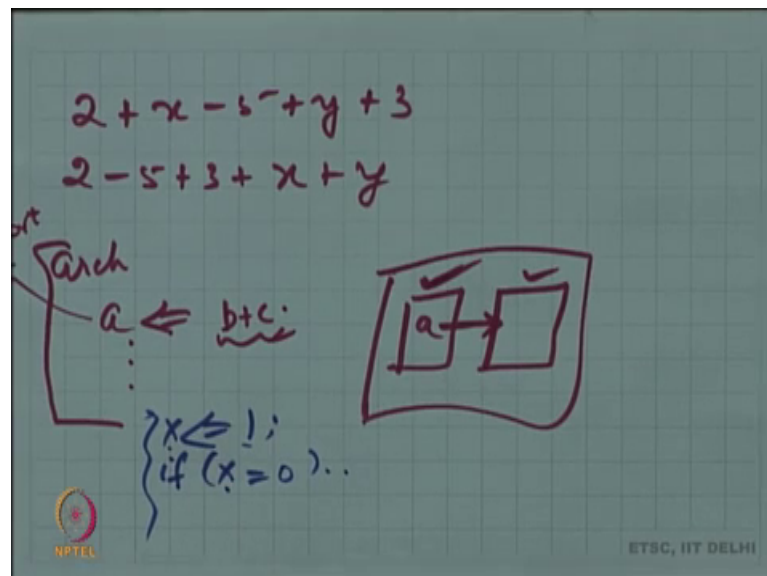 2 + x - 5 + y + 3
2 - 5 + 3 + x + y
arch
a <= b+c.
a
x <= 1;
if (x = 0)..
NPTEL
ETSC, IIT DELHI